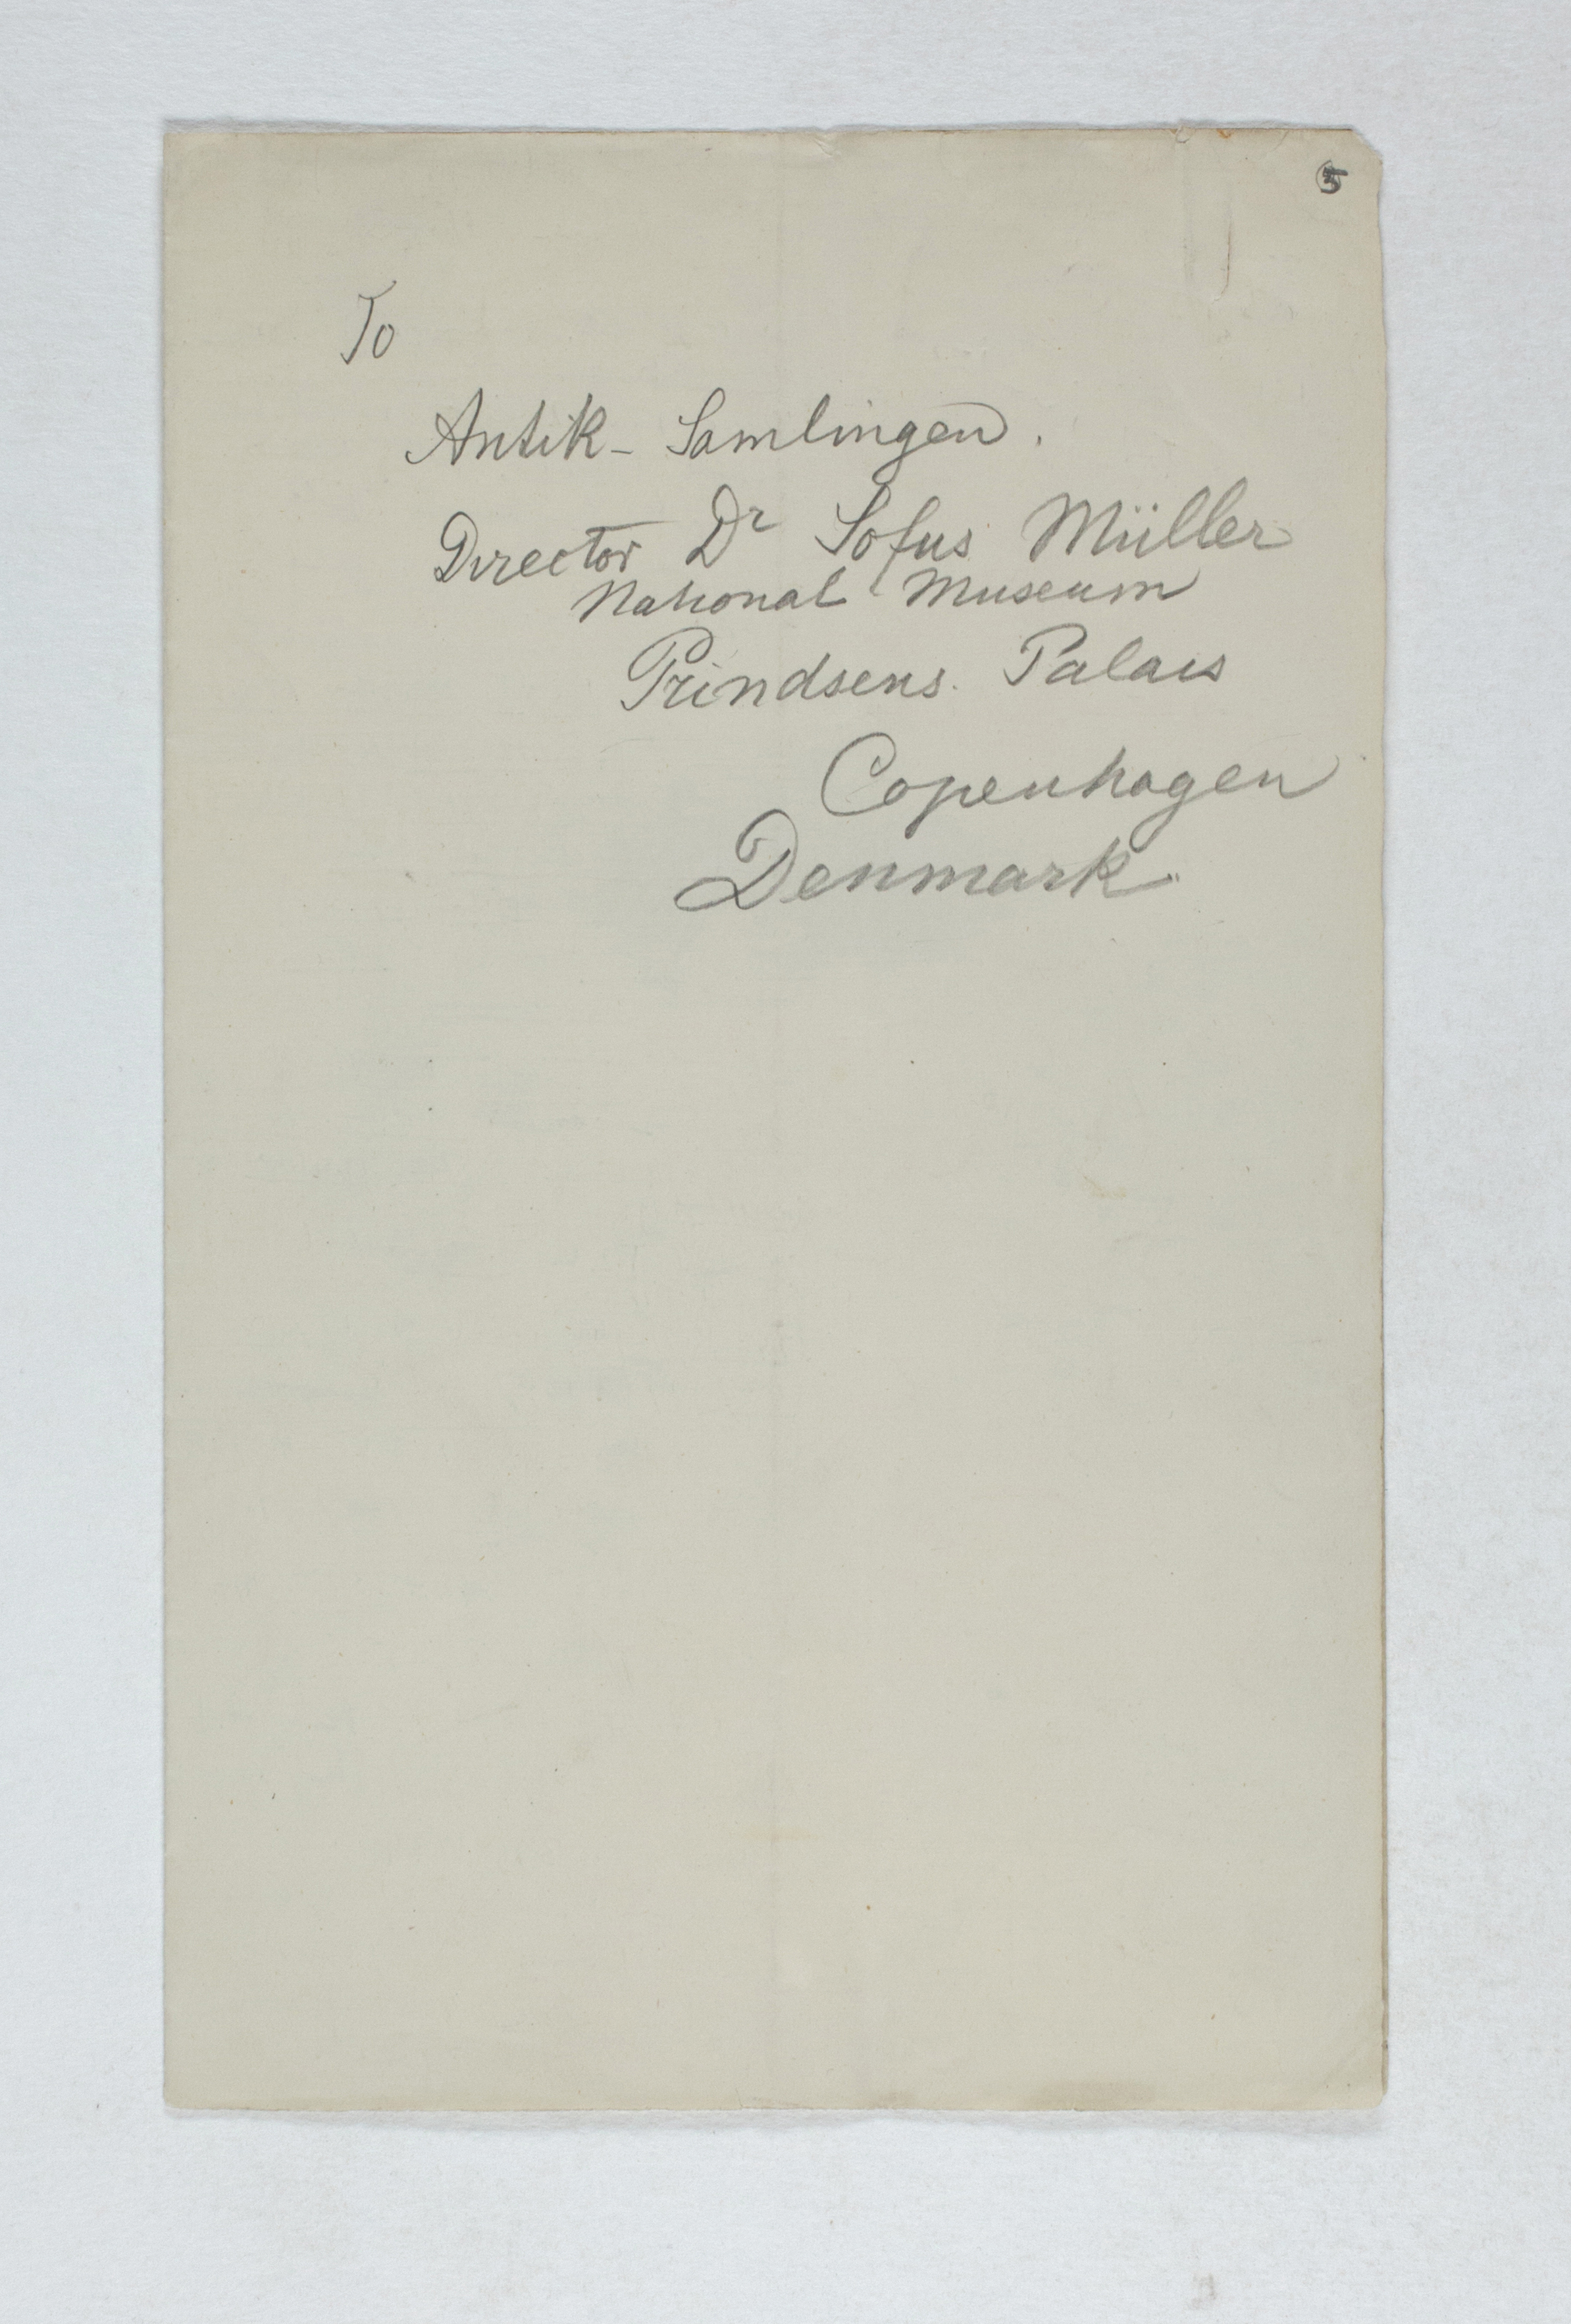 5
To
Antik-Samlingen.
Director Dr Sofus Müller
National Museum
Prindsens Palais
Copenhagen
Denmark.